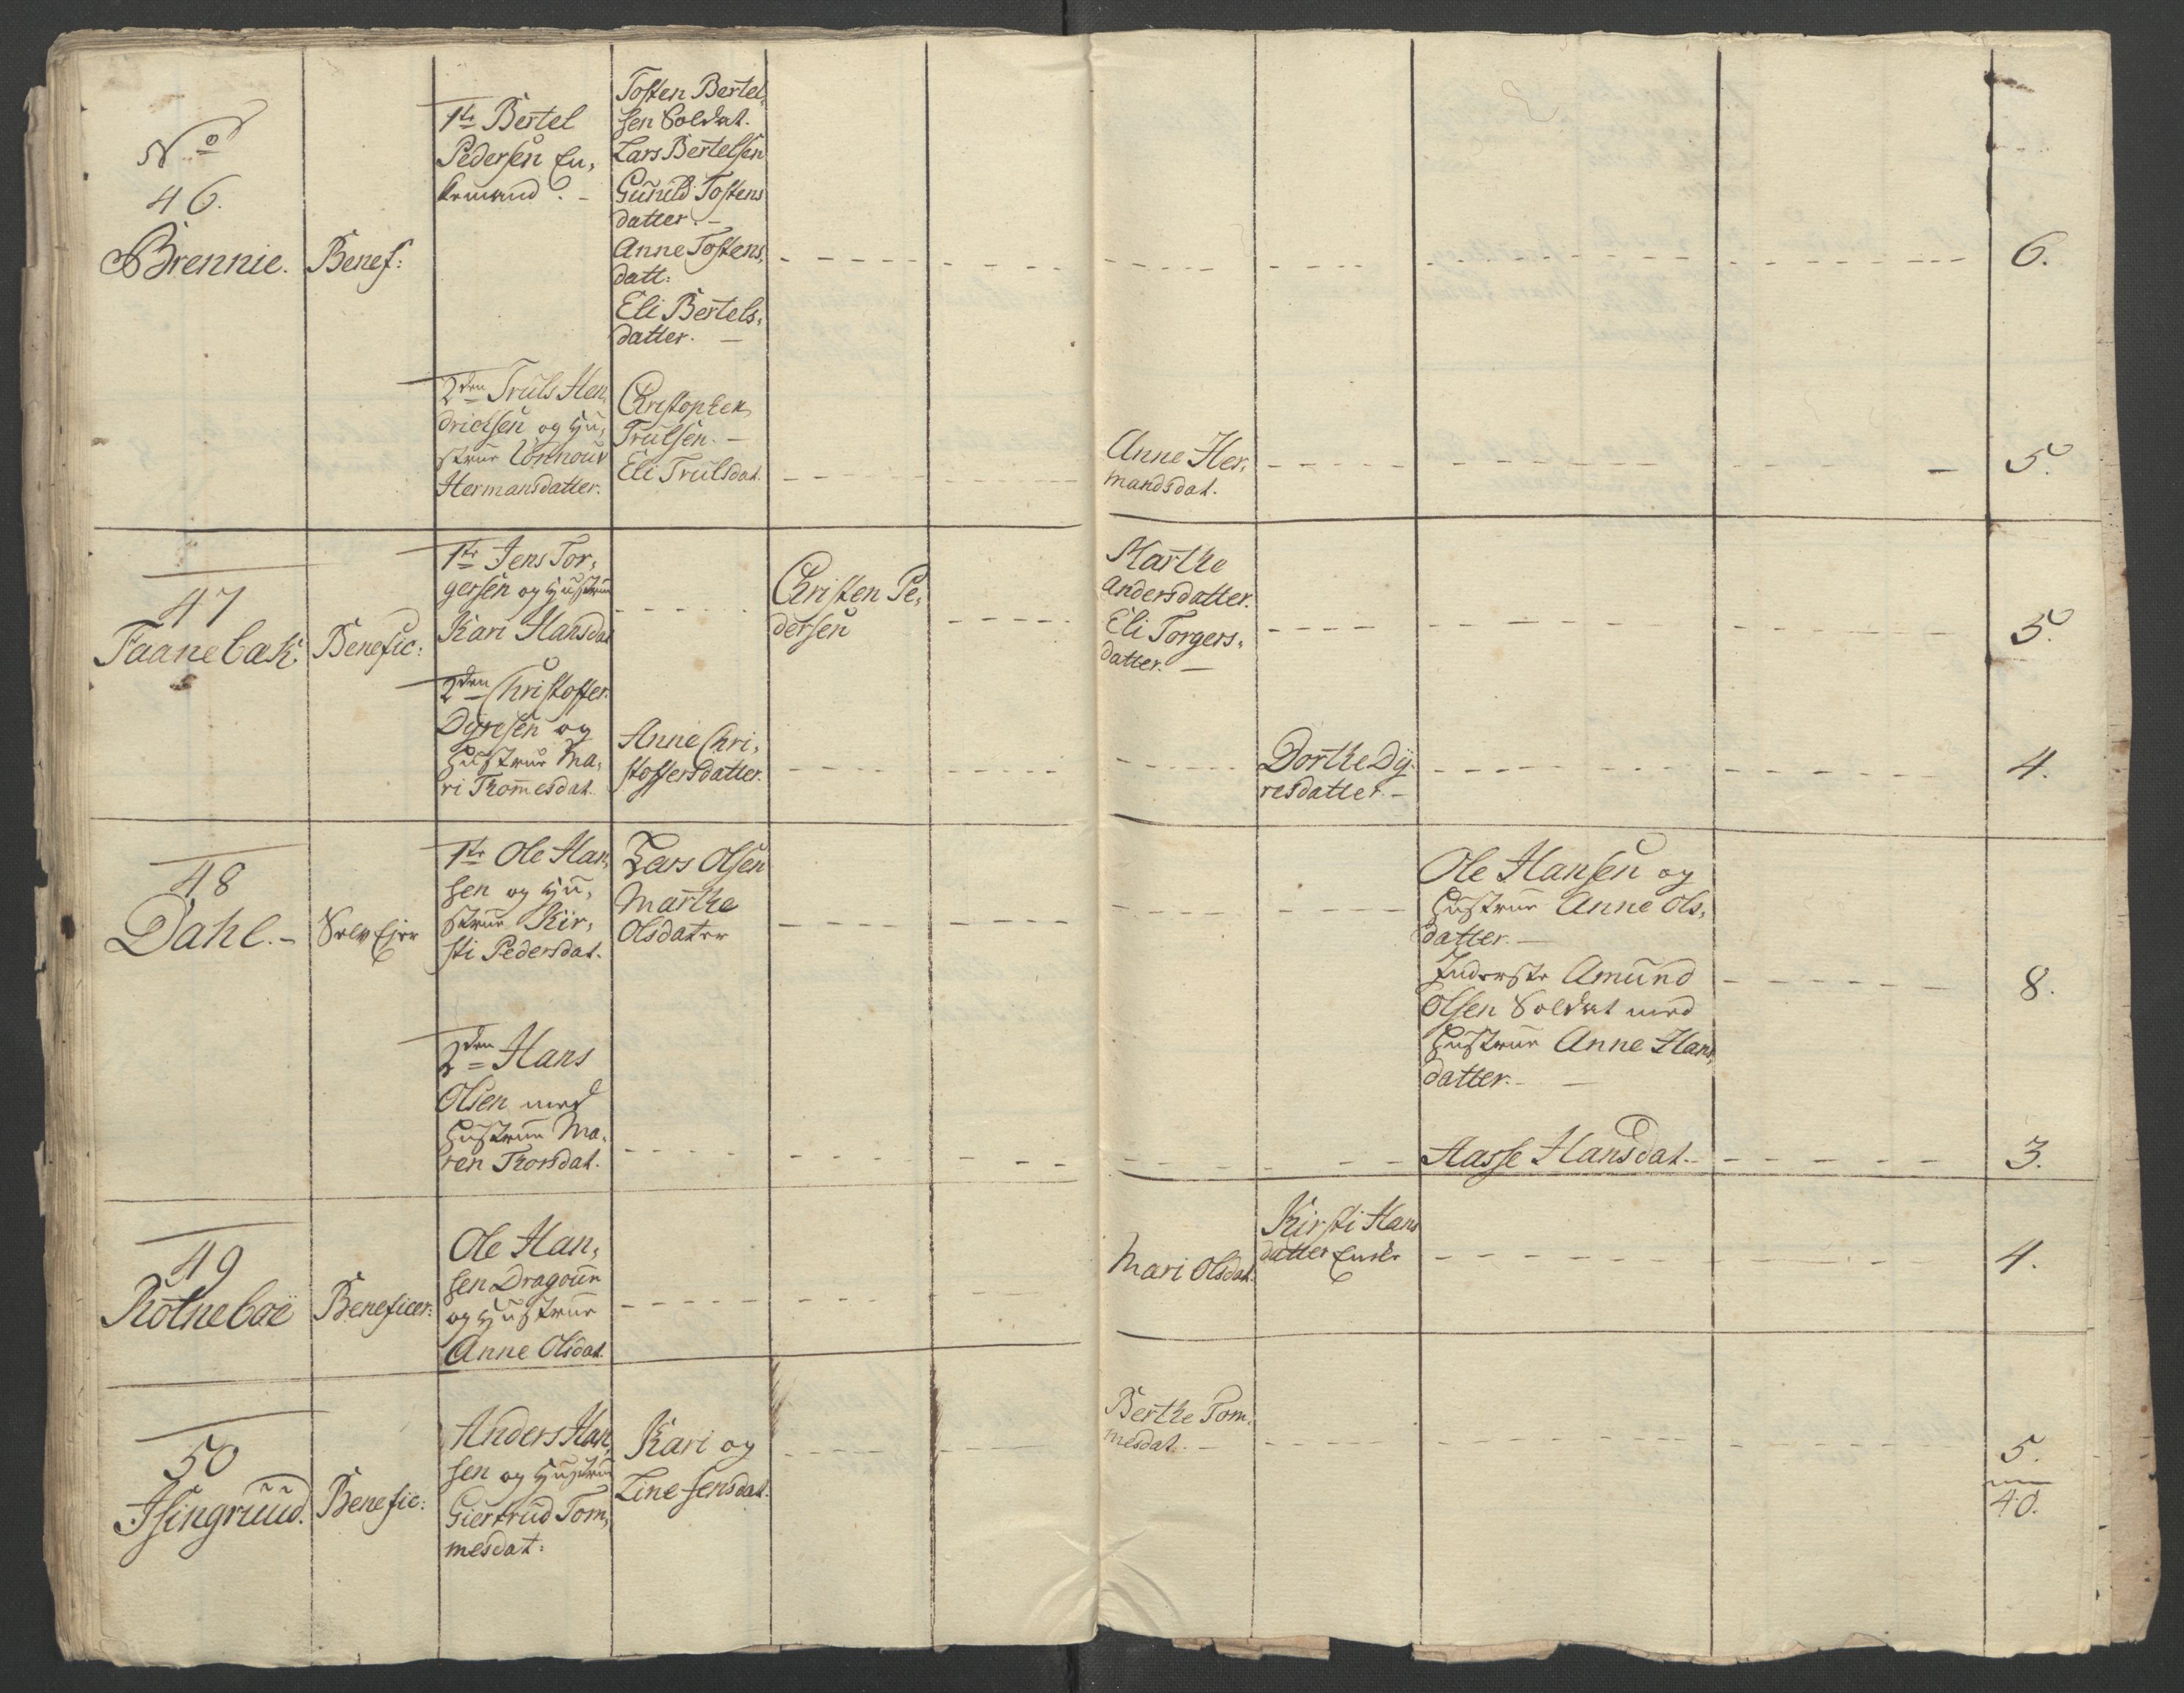 No
46.
Brennie.
Benef:
1te Bertel
Pedersen En,
kemand. -
Tosten Bertel,
sen Soldat.
Lars Bertelsen
Gunild Tostens
datter. -
Anne Tostens,
datt:
Eli Bertels,
datter. -
6.
2den Truls Hen,
drichsen og Hu,
strue
Hermansdatter.
Christopher
Trulsen. -
Eli Trulsdat.
Anne Her,
mandsdat.
5.
47
Faanebæk
Benefic:
1te Jens Tor,
gersen og Hustrue
Kari Hansdat
Christen Pe,
dersen
Marthe
Andersdatter.
Eli Torgers,
datter. -
5.
2den Christoffer
Dyresen og
Hustrue Ma,
ri Thomesdat.
Anne Chri,
stoffersdatter.
Dorthe Dy,
resdatter -
4.
48
Dahl. -
Selv Ejer
1te Ole Han,
sen og Hu,
strue Kir,
sti Pedersdat.
Lars Olsen
Marthe
Olsdater
Ole Hansen og
Hustrue Anne Ols,
datter. -
Inderste Amund
Olsen Soldat med
Hustrue Anne Hans,
datter. -
8.
2den Hans
Olsen med
Hustrue Ma,
ren Thorsdat.
Aasse Hansdat.
3.
49
Rotneboe
Beneficer:
Ole Han,
sen Dragoun
og Hustrue
Anne Olsdat.
Mari Olsdat.
Kirsti Hans
datter Enke
4.
50
Isingruud.
Benefic:
Anders Han,
sen og Hustrue
Giertrud Tom,
mesdat:
Kari og
Line Jensdat.
Berthe Tom,
mesdat. -
5.
40.